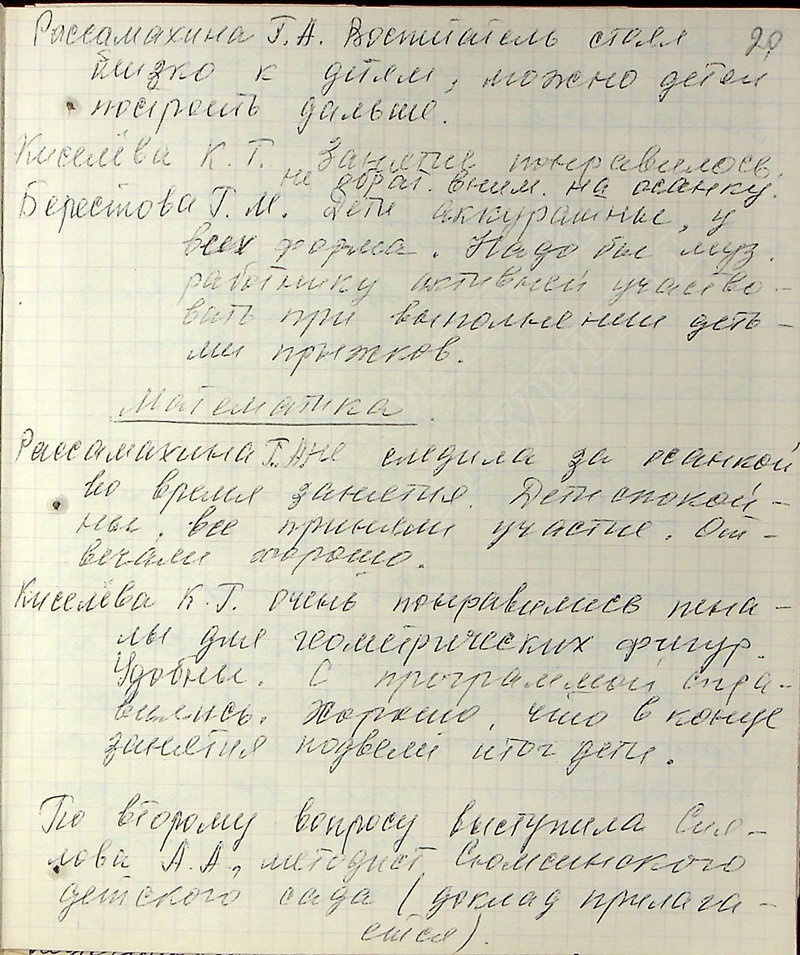 Рассамахина Г.А. Воспитатель стоял 20
близко к детям, можно детей
построить дальше.
Киселёва К.Г. Занятие понравилось.
не обрат. вним. на осанку.
Берестова Г.М. Дети аккуратны, у
всех форма. Надо бы муз.
работнику активней участво-
вать при выполнении деть-
ми прыжков.
Математика
Рассамахина Г.А. Не следила за осанкой
во время занятия. Дети спокой-
ны, все приняли участие. От-
вечали хорошо.
Киселёва К.Г. очень понравились пена-
лы для геометрических фигур.
Удобны. С программой спра-
вились. Хорошо, что в конце
занятия подвели итог дети.
По второму вопросу выступила
лова А.А., методист Сюмсинского
детского сада (доклад прилага-
ется).